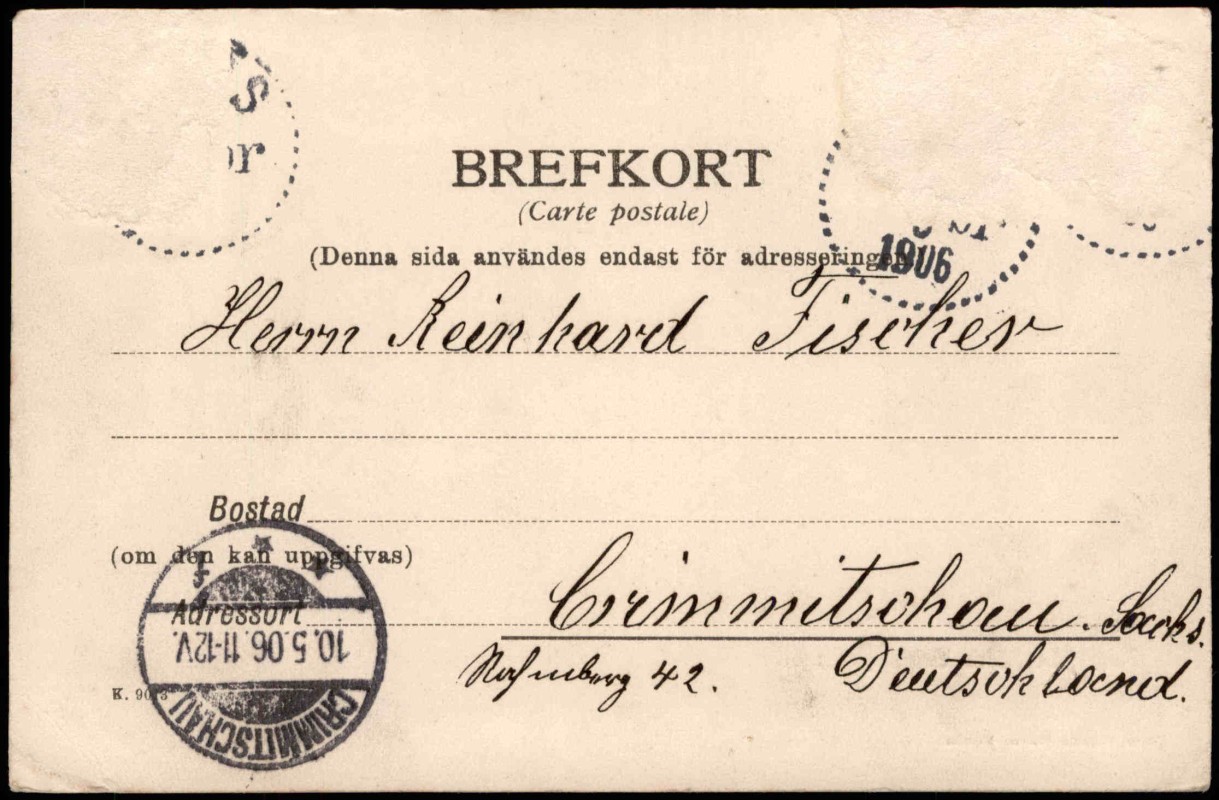 S
or
BREFKORT
(Carte postale)
(Denna sida användes endast för adresseringen.)
1906
Herrn Reinhard Fischer
Bostad
(om den kan uppgifvas)
Crimmitschau. Sachs.
Adressort
42.
Deutschland.
K.
10.5.06.11-12V.
CRIMMITSCHAU